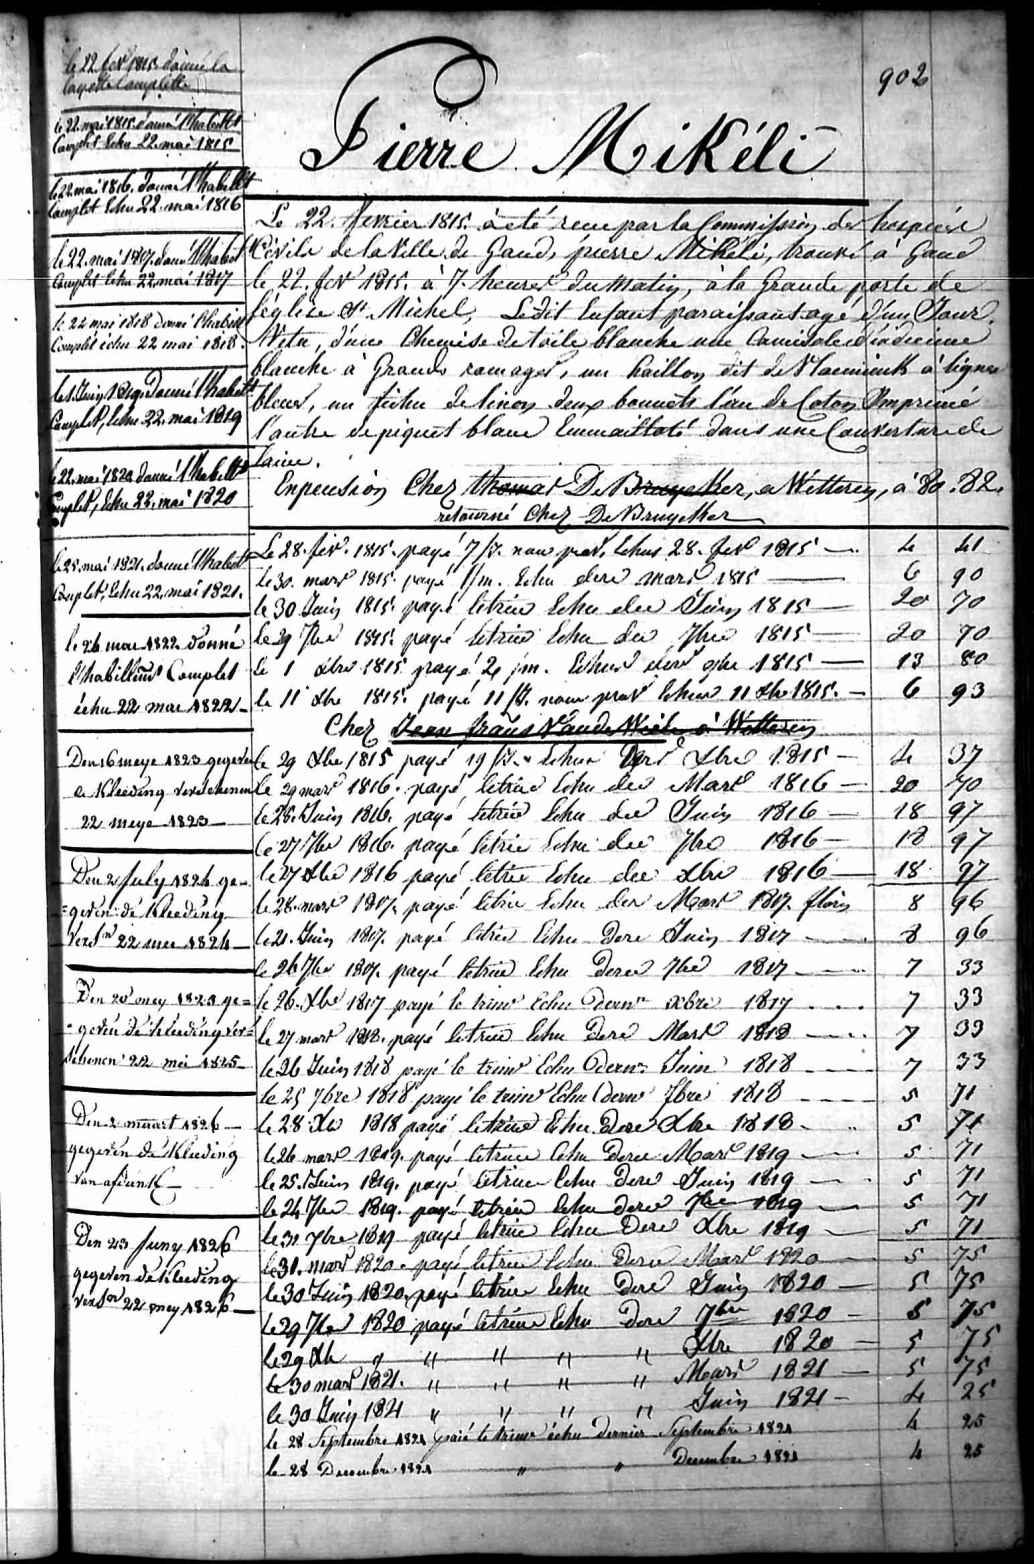 902
Pierre Mikéli
le 22 fevr 1815 donné la
layette Complette
le 22 mai 1815 donné l'habillt
Complet Echu 22 mai 1815
le 22 mai 1816. donné l'habillt
Complet Echu 22 mai 1816
le 22. mai 1817. donné l'habillt
Complet Echu 22 mai 1817
le 22 mai 1818 donné l'habillt
Complet échu 22 mai 1818.
le 1. Juin 1819. Donné l'habillt
Complet, Echu 22. mai 1819
le 22. mai 1820 donné l'habillt
Complet, Echu 22. mai 1820
le 25. mai 1821. donné l'habillt
Complet, Echu 22 mai 1821.
le 26 mai 1822 donné
l'habillemt Complet
échu 22 mai 1822
Den 16 meye 1823 gegeven
de Kleeding verschenen
22 meye 1823
Den 2 July 1824 ge-
=geven de Kleeding
versn 22 mei 1824
Den 20 mey 1825 ge=
=geven de Kleeding ver=
schenen 22 mei 1825
Den 2 maart 1826
gegeven de Kleeding
Den 23 Juny 1826
gegeven de Kleeding
versn 22 mey 1826
Le 22. fevrier 1815. à eté recu par la Commission des hospices
Civils de la Ville de Gand, pierre Mikéli, trouvé à Gand
le 22. fevr 1815. à 7. heures du matin, à la Grande porte de
l'église St Michel, Ledit Enfant paraissant agé d'un Jour.
Vetu, d'une Chemise de toile blanche une Camisole d'indienne
blanche à Grands ramages, un haillon dit de à lignes
bleues, un fichu de linon deux bonnets l'un de Coton Imprimé
l'autre de piquet blanc Emmailloté dans une Couverture de
laine.
Enpension Chez thomas De Bruycker, a Wetteren, à 80.82.
retourné Chez De Bruycker
Le 28. fevr. 1815. payé 7 js. nour prov. Echus 28. fevr 1815 4 41
le 30. mars 1815. payé 1/m. Echu dere mars 1815 6 90
le 30 Juin 1815. payé letrim Echu der Juin 1815 20 70
le 29 7bre 1815. payé letrim Echu der 7bre 1815 20 70
le 1 xbre 1815 payé 2 jm. Echus der 9bre 1815 13 80
le 11 xbre 1815. payé 11 js. nour prov Echus 11 xbr 1815. 6 93
Chez Jean frans Vande Wiele a Wetteren
le 29 xbre 1815 payé 19 js. Echus xbre 1815 4 37
le 29 mars 1816. payé letrim Echu der Mars 1816 20 70
le 26. Juin 1816. payé letrim Echu der Juin 1816 18 97
le 27 7bre 1816. payé letrim Echu der 7bre 1816 18 97
le 27 xbre 1816 payé letrim Echu der xbre 1816 18 97
le 28. mars 1817. payé letrim Echu der Mars 1817. florin 8 96
le 21. Juin 1817. payé letrim Echu Dere Juin 1817 8 96
le 26 7bre 1817. payé letrim Echu Dere 7bre 1817 7 33
le 26. xbre 1817 payé le trimr Echu dernr xbre 1817 7 33
le 27 mars 1818. payé letrim Echu Dere Mars 1818 7 33
le 26 Juin 1818 payé le trimr Echu dernr Juin 1818 7 33
le 25 7bre 1818 payé le trimr Echu dernr 7bre 1818 5 71
le 28 xbr 1818 payé letrim Echu Dere xbre 1818 5 71
le 26 mars 1819. payé letrim Echu Dere Mars 1819 5 71
le 25. Juin 1819. payé letrim Echu Dere Juin 1819 5 71
le 24 7bre 1819. payé letrim Echu dere 7bre 1819 5 71
le 31 xbre 1819 payé letrim Echu Dere xbre 1819 5 71
le 31. mars 1820. payé letrim Echu Dere Mars 1820 5 75
le 30 Juin 1820, payé letrim Echu Dere Juin 1820 5 75
le 29 7bre 1820 payé letrim Echu Dere 7bre 1820 5 75
le 29 xbr " " " " " xbre 1820 5 75
le 30 mars 1821. " " " " Mars 1821 5 75
le 30 Juin 1821 " " " " Juin 1821 4 25
le 28 Septembre 1821 paié le trimr échu dernier Septembre 1821 4 25
le 28 Decembre 1821 " " Decembre 1821 4 25